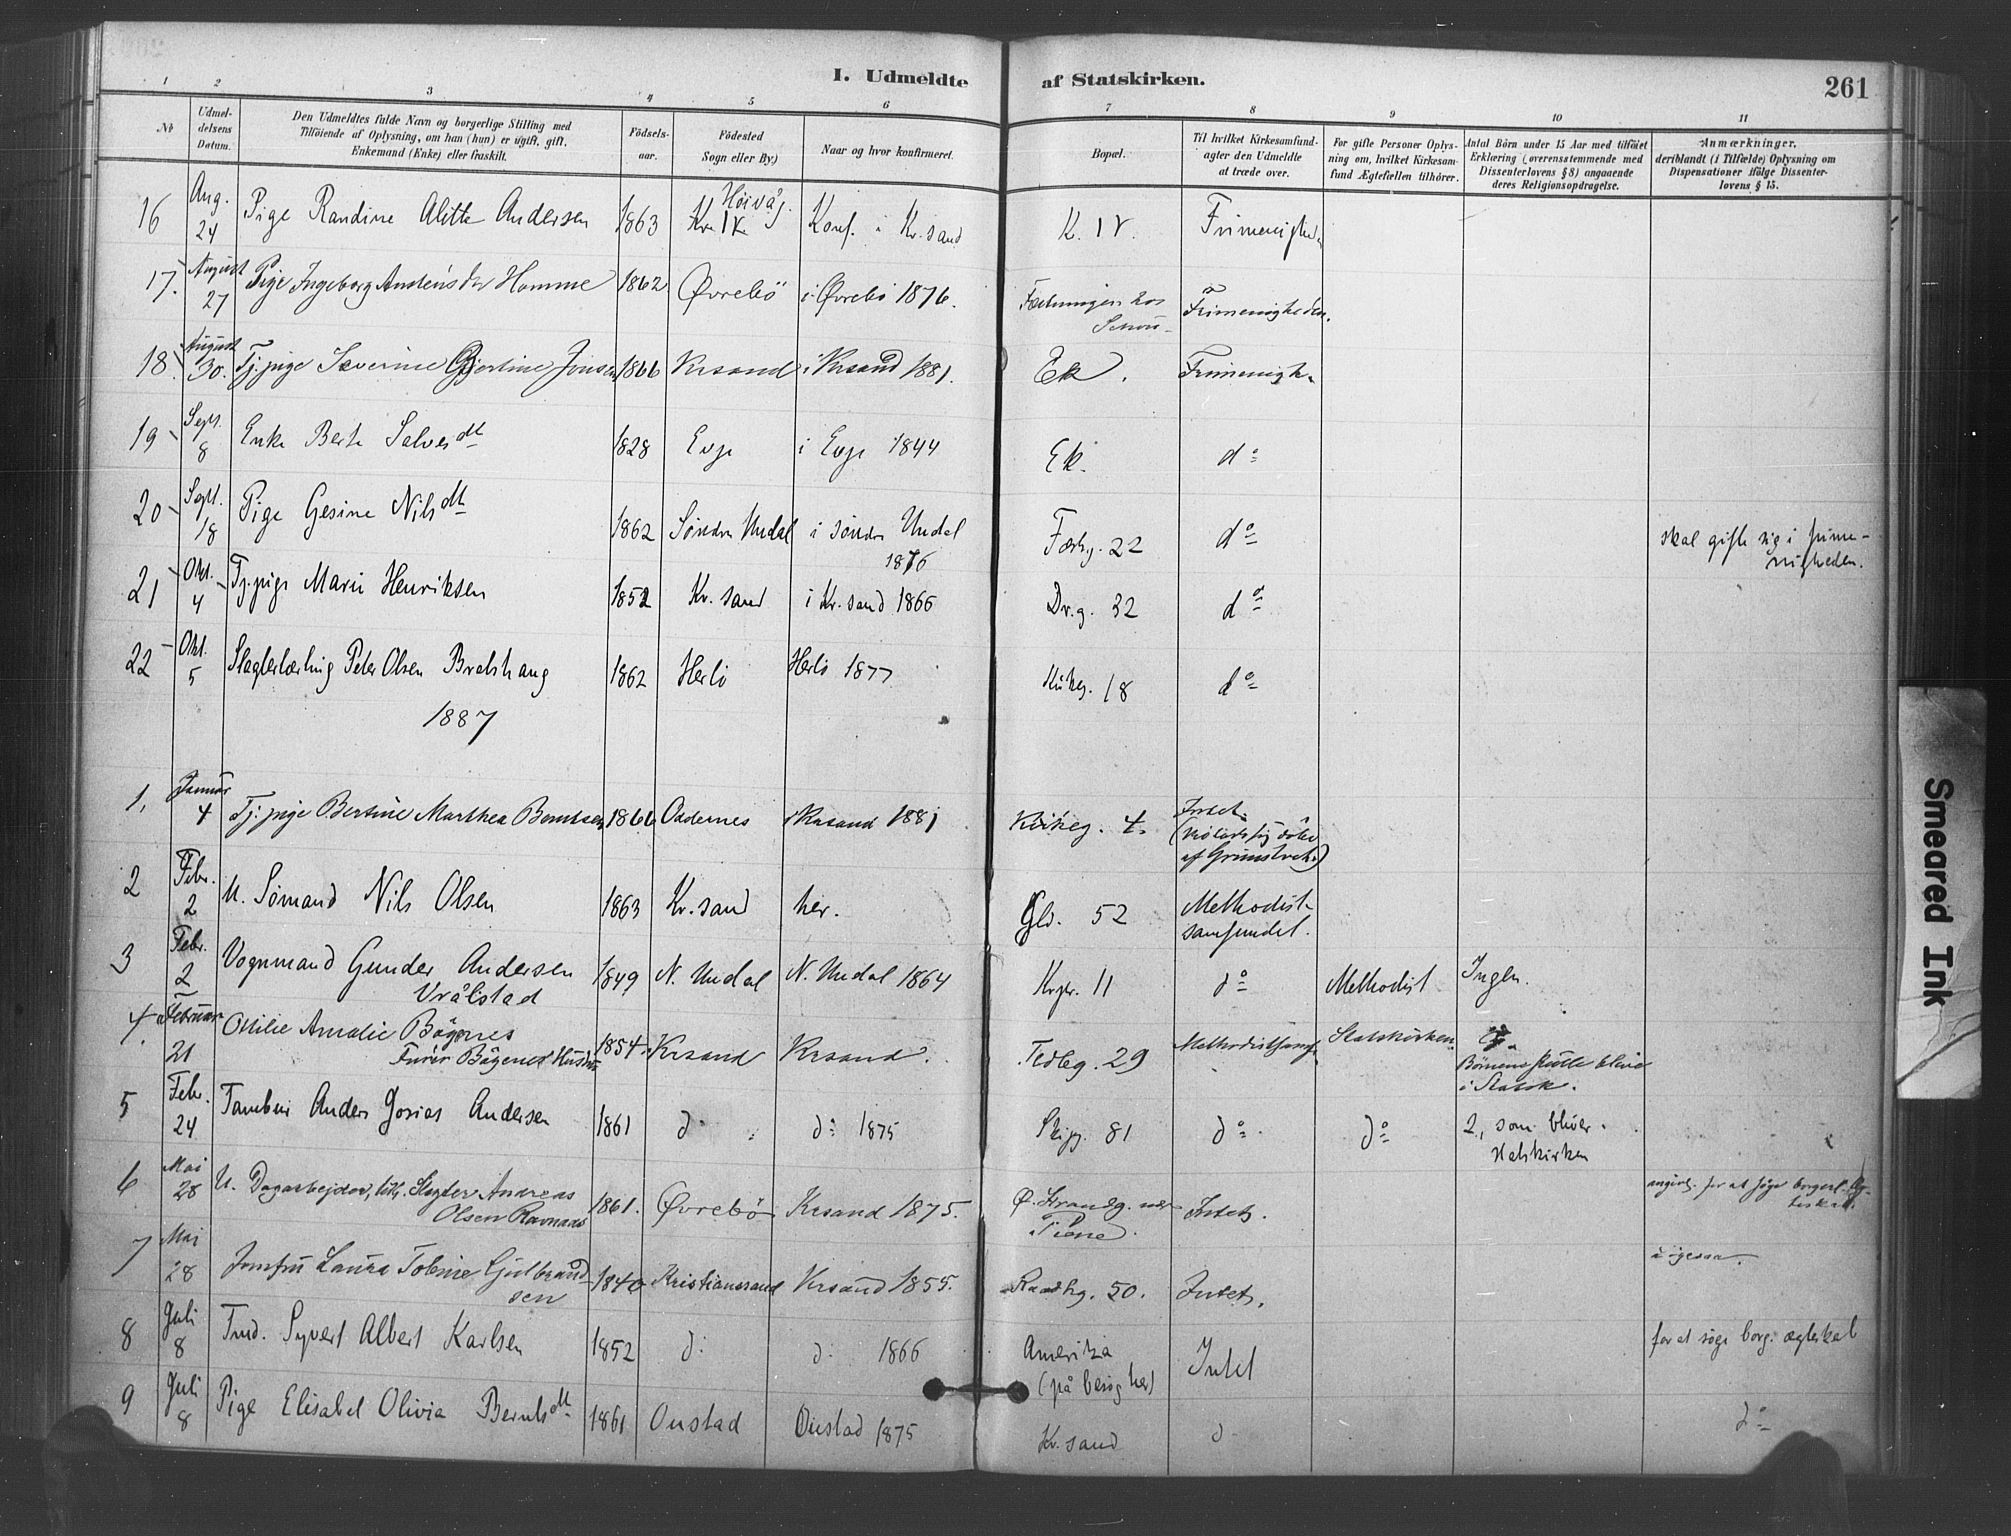 I. Udmeldte af Statskirken. 261
1 2 3 4 5 6 7 8 9 10 11
No
Udmeldelsens Datum.
Den Udmeldtes fulde Navn og borgerlige Stilling med
Tilføiende af Oplysning, om han (hun) er ugift, gift,
Enkemand (Enke) eller fraskilt.
Fødselsaar.
Fødested
Sogn eller By.)
Naar og hvor konfirmeret.
Bopæl.
Til hvilket Kirkesamfund
agter den Udmeldte
at træde over.
For gifte Personer Oplysning
om, hvilket Kirkesamfund
Ægtefællen tilhører.
Antal Børn under 15 Aar med tilføiet
Erklæring (overensstemmende med
Dissenterlovens § 8) angaaende
deres Religionsopdragelse.
Anmærkninger,
deriblandt (i Tilfælde) Oplysning om
Dispensationer ifølge Dissenterlovens
§ 15.
16 Aug. 24 Pige Randine Alitte Andersen 1863 Høivåg. Konf. i Kr.sand K. 17.
17. August 27 Pige Ingeborg Homme 1862 Øvrebö i Øvrebö 1876. Frimenigheden.
18. August 30. Tj.pige Severine Gjertine 1866 Krsand i Krsand 1881. Ek. Frimenigh.
19 Sept. 8 Enke Berte Salvesdtt 1828 Evje i Evje 1844 Ek. do
20 Sept. 18 Pige Gesine Nilsdtt 1862 Søndre Undal i Søndre Undal 1876 Fæstng. 22 do skal gifte sig i frimenigheden.
21 Okt. 4 Tj.pige Marie Henriksen 1852 Kr.sand i Kr.sand 1866 Dr.g. 32 do
22 Okt. 5 Slagterlærling Peter Olsen 1862 Herlö Herlö 1877 Kirkeg. 18 do
1887
1. Januar 4 Tj.pige Bertine Marthea Berntsen 1866 Oddernes i Krsand 1881 Kirkeg. 4. Intet.
2 Febr. 2 U. Sömand Nils Olsen 1863 Kr.sand her. Gld. 52 Methodistsamfundet.
3 Febr. 2 Vognmand Gunder Andersen Vrålstad 1849 N. Undal N. Undal 1864 11 do Methodist Ingen.
4. Februar 21 Ottilie Amalie Bögenes 1854 Krsand Krsand. 29 Methodistsamf. Statskirken.
Börnene skulle blive i Statsk.
5 Febr. 24 Anders Josias Andersen 1861 do do 1875 Skipg. 81 do do 2, som bliver Statskirken
6 Mai 28 U. Dagarbejder, tidl. Slagter Andreas Olsen Ravnaas 1861. Øvrebö Krsand 1875. Ø. Strandg. Intet. angivl. for at søge borgerl.
7 Mai 28 Jomfru Laura Tobine Gulbrandsen 1840 Kristianssand Krsand 1855. Raadhg. 50. Intet. ligesaa.
8 Juli 8 Tmd. Syvert Albert Karlsen 1852 do do 1866 Amerika (på besög her) Intet for at søge borg. ægteskab
9 Juli 8 Pige Elisabet Olivia Berntsdtt 1861 Onstad Onstad 1875 Kr.sand do do
Smeared Ink